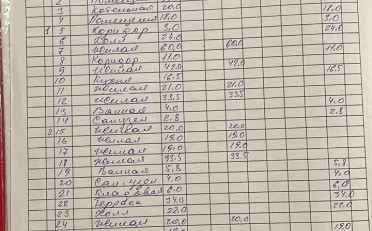 3 Котельная 20,0 18,0
4 Помещения 18,0 3,0
1 5 Коридор 3,0 24,0
6 Холл 24,0
7 Жилая 60,0 60,0 11,0
8 Коридор 11,0
9 Жилая 42,0 42,0 16,5
10 Кухня 16,5
11 Жилая 21,0 21,0
12 Жилая 33,5 33,5
13 Ванная 4,0 4,0
14 Санузел 2,8 2,8
2 15 Жилая 20,0 20,0
16 Жилая 19,0 19,0
17 Жилая 19,0 19,0
18 Жилая 33,5 33,5
19 Ванная 5,8 5,8
20 Санузел 4,0 4,0
21 6,0 6,0
22 Терраса 34,0 34,0
23 Холл 22,0 22,0
24 Жилая 20,0 20,0